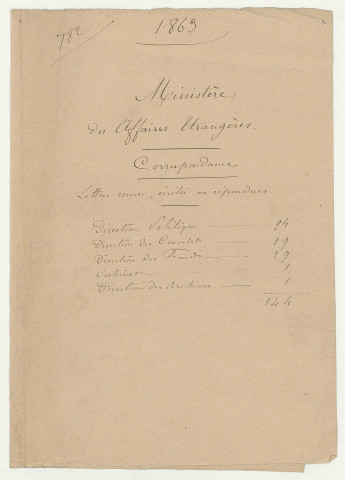 1863
782
Ministère
des Affaires Etrangères.
Correspondance
Lettres reçues, visées ou répondues
Direction Politique 94
Direction des Consulats 19
Direction des Fonds 29
Cabinet 1
Direction des Archives 1
144